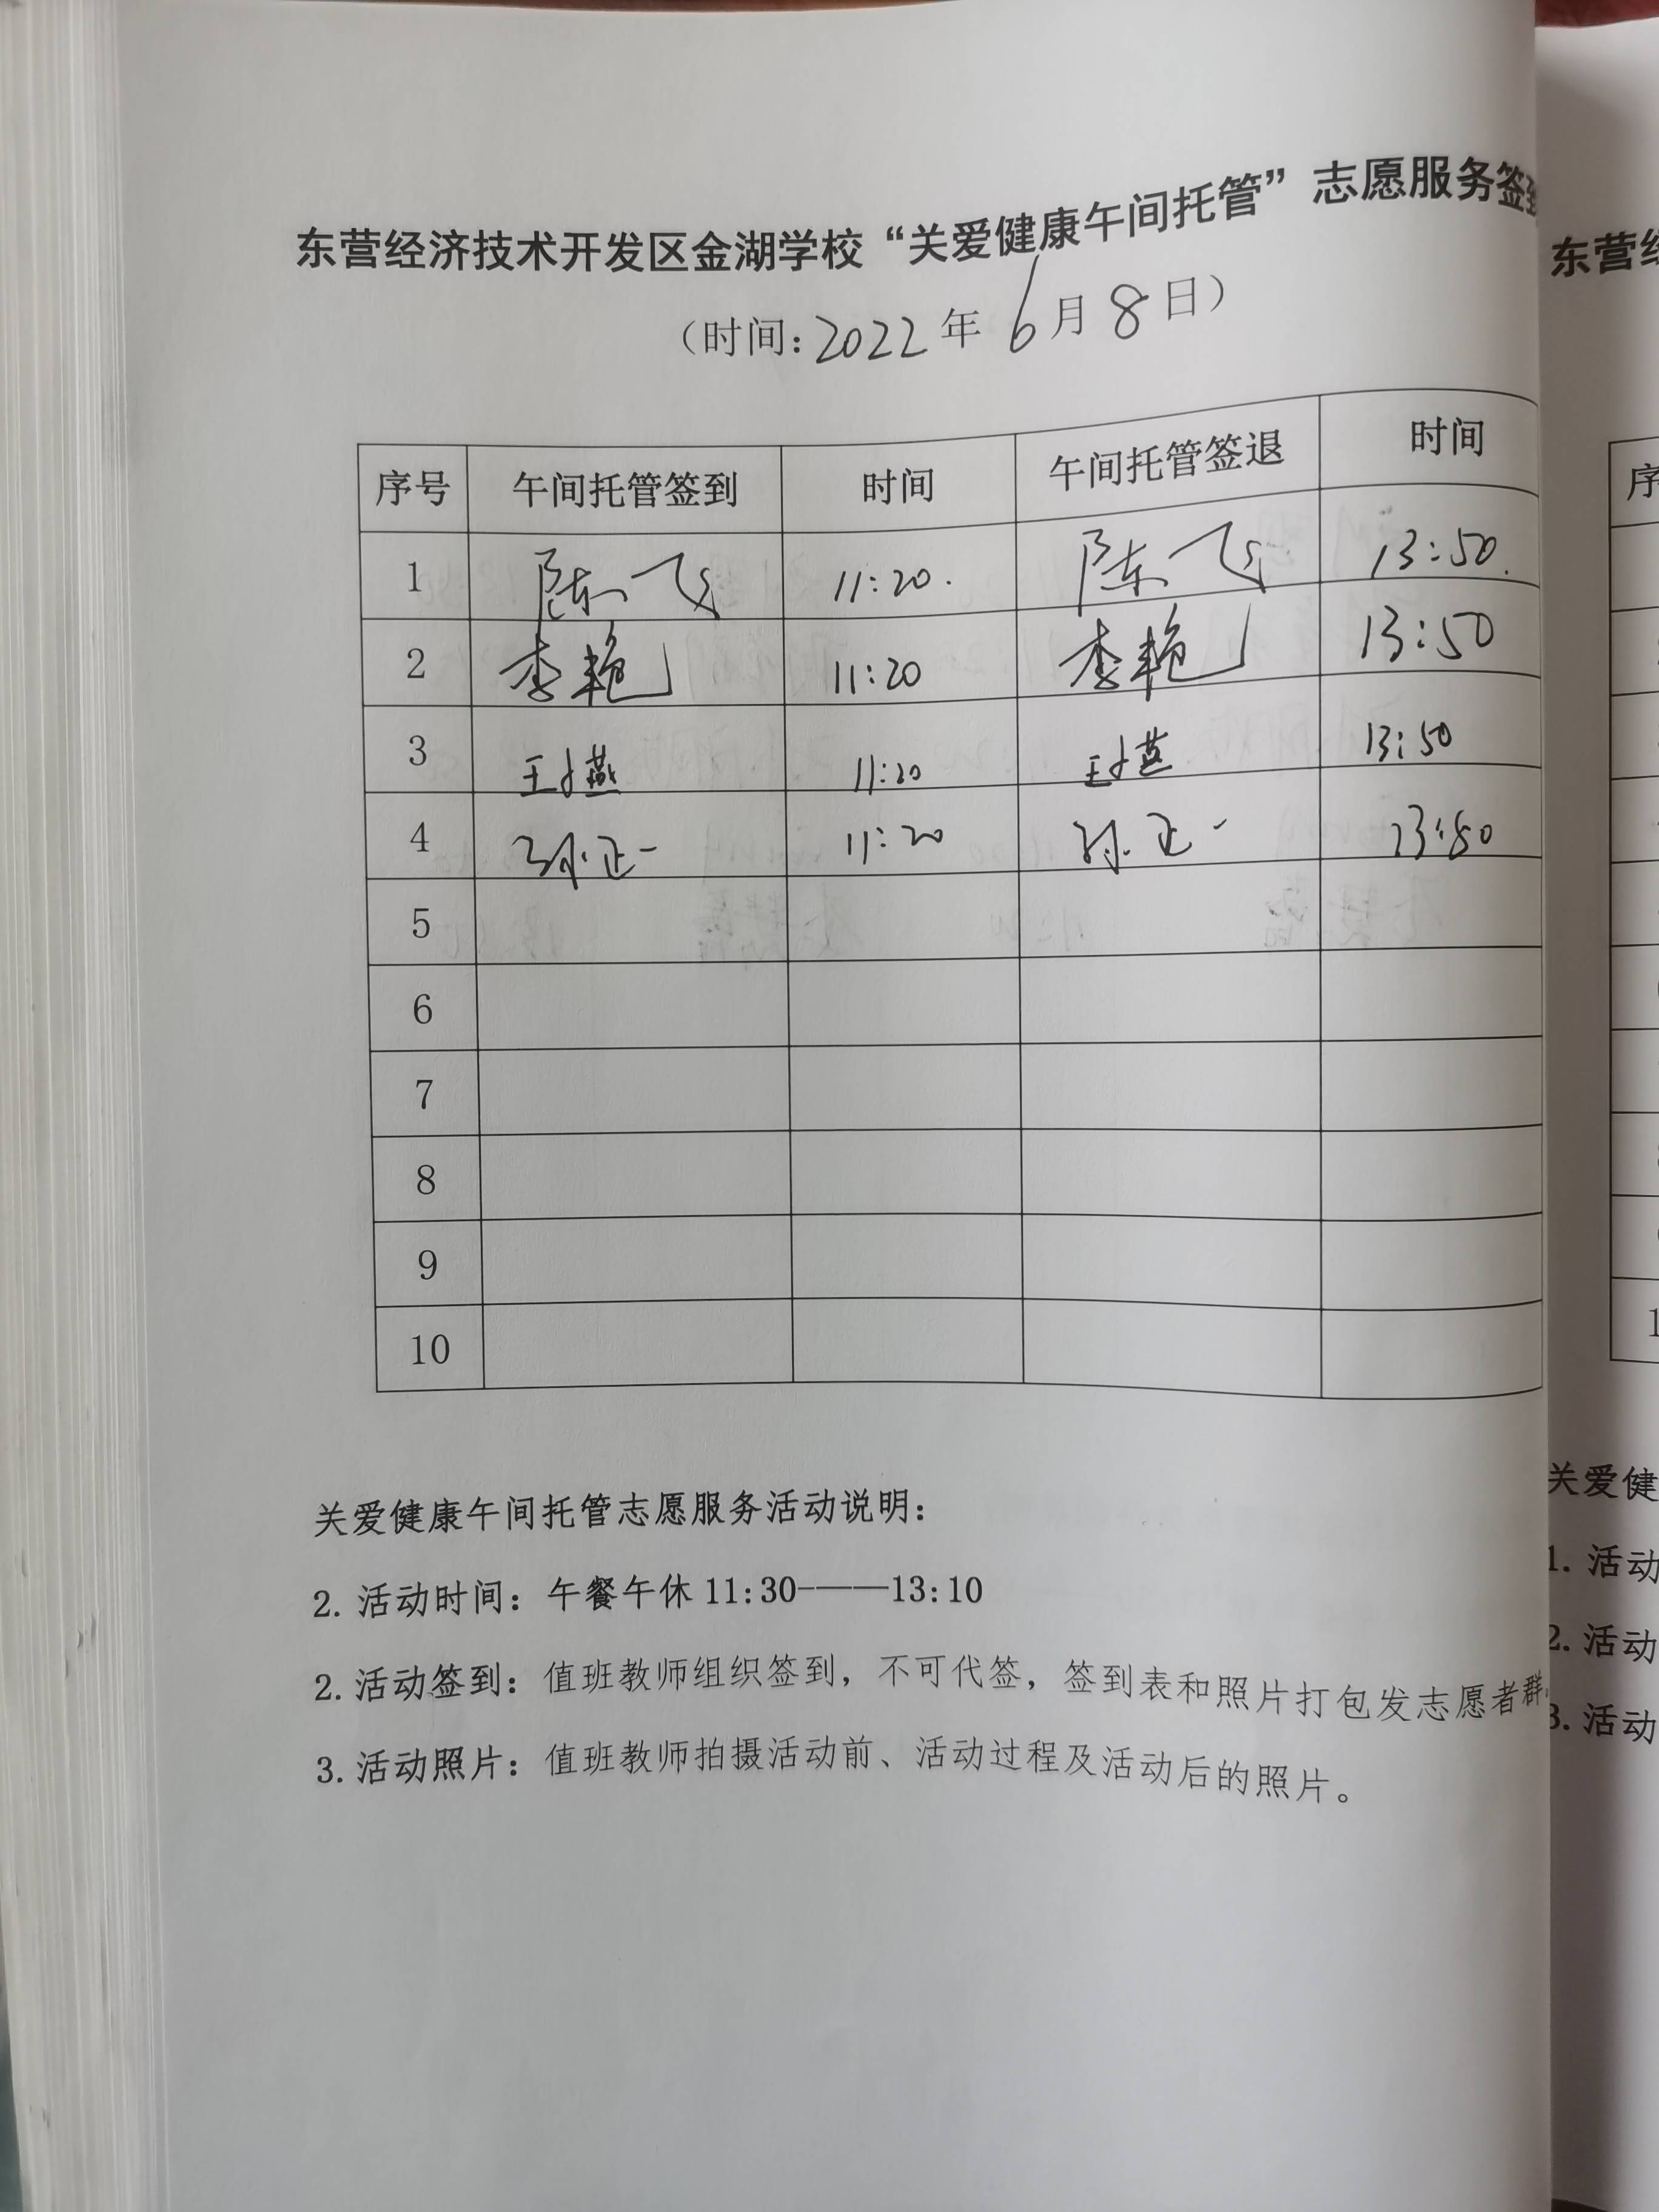 东营经济技术开发区金湖学校“关爱健康午间托管”志愿服务签到
(时间:2022年6月8日)
序号 午间托管签到 时间 午间托管签退 时间
1 陈飞 11:20. 陈飞 13:50.
2 李艳 11:20 李艳 13:50
3 王小燕 11:20 王小燕 13:50
4 孙正一 11:20 孙正一 13:50
5
6
7
8
9
10
关爱健康午间托管志愿服务活动说明:
2. 活动时间: 午餐午休 11:30-——13:10
2. 活动签到: 值班教师组织签到,不可代签,签到表和照片打包发志愿者群
3. 活动照片: 值班教师拍摄活动前、活动过程及活动后的照片。
东营经
序
关爱健
1. 活动
2. 活动
3. 活动